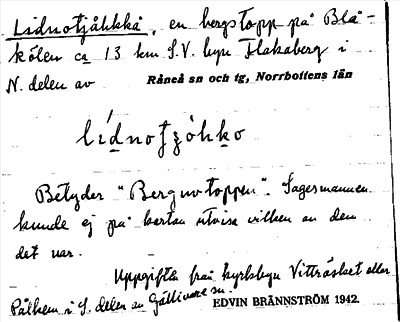 Lidnotjåhkkå, en bergstopp på Blå-
kölen ca 13 km S.V. byn Flakaberg i
N. delen av Råneå sn och tg, Norrbottens län
lídnotzóhko
Betyder "Berguvtoppen". Sagesmannen
kunde ej på kartan utvisa vilken av dem
det var.
Uppgifter från kyrkbyn Vitträsket eller
Pålkem i S. delen av Gällivare sn.
EDVIN BRÄNNSTRÖM 1942.